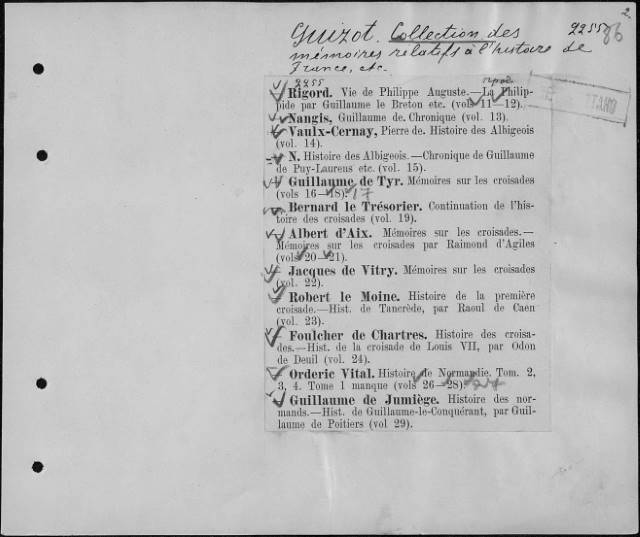 2
Guizot. Collection des 2255
86
mémoires relatifs à l'histoire de
France, etc.
2255
Rigord. Vie de Philippe Auguste.—La Philip-
pide par Guillaume le Breton etc. (vols 11—12).
Nangis, Guillaume de. Chronique (vol. 13).
Vaulx-Cernay, Pierre de. Histoire des Albigeois
(vol. 14).
N. Histoire des Albigeois.—Chronique de Guillaume
de Puy-Laurens etc. (vol. 15).
Guillaume de Tyr. Mémoires sur les croisades
(vols 16—18). 17
Bernard le Trésorier. Continuation de l'his-
toire des croisades (vol. 19).
Albert d'Aix. Mémoires sur les croisades.—
Mémoires sur les croisades par Raimond d'Agiles
(vols 20—21).
Jacques de Vitry. Mémoires sur les croisades
(vol. 22).
Robert le Moine. Histoire de la première
croisade.—Hist. de Tancrède, par Raoul de Caen
(vol. 23).
Foulcher de Chartres. Histoire des croisa-
des.—Hist. de la croisade de Louis VII, par Odon
de Deuil (vol. 24).
Orderic Vital. Histoire de Normandie. Tom. 2,
3, 4. Tome 1 manque (vols 26—28).
Guillaume de Jumiège. Histoire des nor-
mands.—Hist. de Guillaume-le-Conquérant, par Guil-
laume de Poitiers (vol 29).